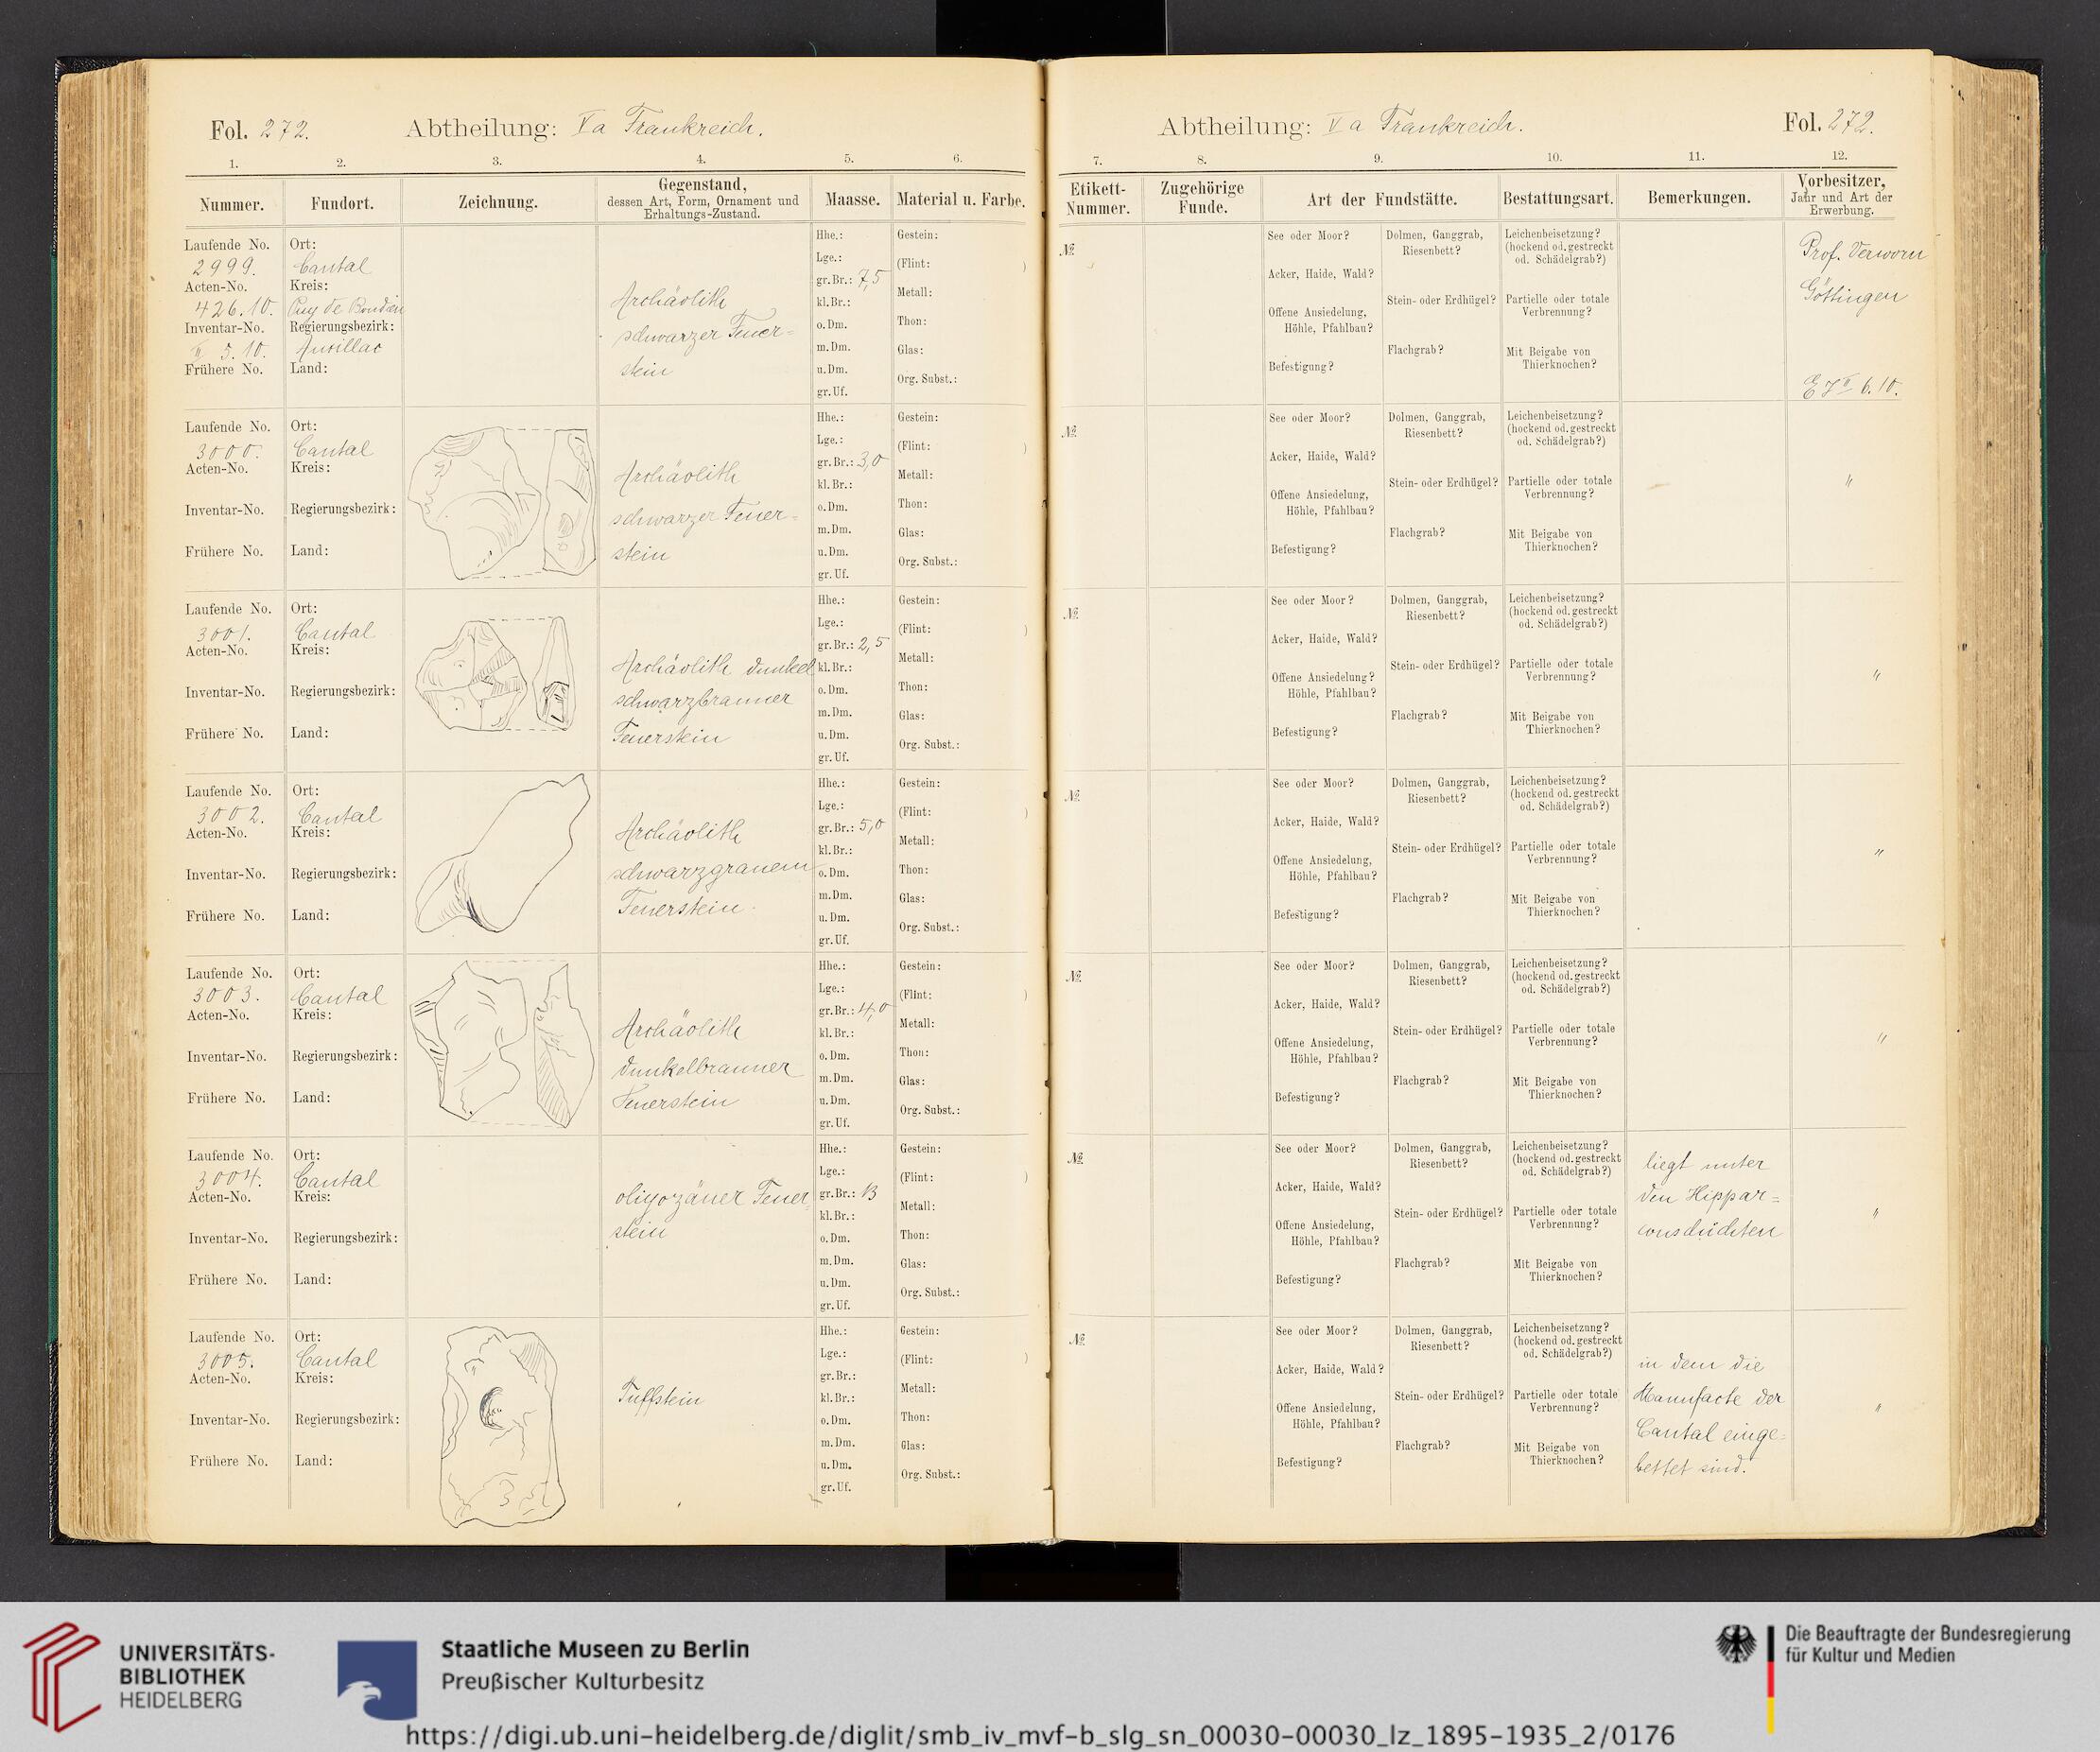 Fol. 272.
Abtheilung: Va Frankreich.
1. 2. 3. 4. 5. 6.
Nummer.
Fundort.
Zeichnung.
Gegenstand,
dessen Art, Form, Ornament und
Erhaltungs-Zustand.
Maasse.
Material u. Farbe.
Laufende No.
2999.
Acten-No.
426.10.
Inventar-No.
II 5.10.
Frühere No.
Ort:
Cantal
Kreis:
Puy de
Regierungsbezirk:
Aurillac
Land:
Archäolith
schwarzer Feuer=
stein
Hhe.:
Lge.:
gr. Br.: 7,5
kl. Br.:
o. Dm.
m. Dm.
u. Dm.
gr. Uf.
Gestein:
(Flint: )
Metall:
Thon:
Glas:
Org. Subst.:
Laufende No.
3000.
Acten-No.
Inventar-No.
Frühere No.
Ort:
Cantal
Kreis:
Regierungsbezirk:
Land:
Archäolith
schwarzer Feuer=
stein
Hhe.:
Lge.:
gr. Br.: 3,0
kl. Br.:
o. Dm.
m. Dm.
u. Dm.
gr. Uf.
Gestein:
(Flint: )
Metall:
Thon:
Glas:
Org. Subst.:
Laufende No.
3001.
Acten-No.
Inventar-No.
Frühere No.
Ort:
Cantal
Kreis:
Regierungsbezirk:
Land:
Archäolith dunkel
schwarzbrauner
Feuerstein
Hhe.:
Lge.:
gr. Br.: 2,5
kl. Br.:
o. Dm.
m. Dm.
u. Dm.
gr. Uf.
Gestein:
(Flint: )
Metall:
Thon:
Glas:
Org. Subst.:
Laufende No.
3002.
Acten-No.
Inventar-No.
Frühere No.
Ort:
Cantal
Kreis:
Regierungsbezirk:
Land:
Archäolith
schwarzgrauem
Feuerstein.
Hhe.:
Lge.:
gr. Br.: 5,0
kl. Br.:
o. Dm.
m. Dm.
u. Dm.
gr. Uf.
Gestein:
(Flint: )
Metall:
Thon:
Glas:
Org. Subst.:
Laufende No.
3003.
Acten-No.
Inventar-No.
Frühere No.
Ort:
Cantal
Kreis:
Regierungsbezirk:
Land:
Archäolith
dunkelbrauner
Feuerstein
Hhe.:
Lge.:
gr. Br.: 4,0
kl. Br.:
o. Dm.
m. Dm.
u. Dm.
gr. Uf.
Gestein:
(Flint: )
Metall:
Thon:
Glas:
Org. Subst.:
Laufende No.
3004.
Acten-No.
Inventar-No.
Frühere No.
Ort:
Cantal
Kreis:
Regierungsbezirk:
Land:
oligozäner Feuer=
stein
Hhe.:
Lge.:
gr. Br.: 13
kl. Br.:
o. Dm.
m. Dm.
u. Dm.
gr. Uf.
Gestein:
(Flint: )
Metall:
Thon:
Glas:
Org. Subst.:
Laufende No.
3005.
Acten-No.
Inventar-No.
Frühere No.
Ort:
Cantal
Kreis:
Regierungsbezirk:
Land:
Tuffstein
Hhe.:
Lge.:
gr. Br.:
kl. Br.:
o. Dm.
m. Dm.
u. Dm.
gr. Uf.
Gestein:
(Flint: )
Metall:
Thon:
Glas:
Org. Subst.:
Abtheilung: Va Frankreich.
Fol. 272.
7. 8. 9. 10. 11. 12.
Etikett-
Nummer.
Zugehörige
Funde.
Art der Fundstätte.
Bestattungsart.
Bemerkungen.
Vorbesitzer,
Jahr und Art der
Erwerbung.
№
See oder Moor?
Acker, Haide, Wald?
Offene Ansiedelung,
Höhle, Pfahlbau?
Befestigung?
Dolmen, Ganggrab,
Riesenbett?
Stein- oder Erdhügel?
Flachgrab?
Leichenbeisetzung?
(hockend od. gestreckt
od. Schädelgrab?)
Partielle oder totale
Verbrennung?
Mit Beigabe von
Thierknochen?
Prof. Verworn
Göttingen
E J II 6.10.
№
See oder Moor?
Acker, Haide, Wald?
Offene Ansiedelung,
Höhle, Pfahlbau?
Befestigung?
Dolmen, Ganggrab,
Riesenbett?
Stein- oder Erdhügel?
Flachgrab?
Leichenbeisetzung?
(hockend od. gestreckt
od. Schädelgrab?)
Partielle oder totale
Verbrennung?
Mit Beigabe von
Thierknochen?
"
№
See oder Moor?
Acker, Haide, Wald?
Offene Ansiedelung?
Höhle, Pfahlbau?
Befestigung?
Dolmen, Ganggrab,
Riesenbett?
Stein- oder Erdhügel?
Flachgrab?
Leichenbeisetzung?
(hockend od. gestreckt
od. Schädelgrab?)
Partielle oder totale
Verbrennung?
Mit Beigabe von
Thierknochen?
"
№
See oder Moor?
Acker, Haide, Wald?
Offene Ansiedelung,
Höhle, Pfahlbau?
Befestigung?
Dolmen, Ganggrab,
Riesenbett?
Stein- oder Erdhügel?
Flachgrab?
Leichenbeisetzung?
(hockend od. gestreckt
od. Schädelgrab?)
Partielle oder totale
Verbrennung?
Mit Beigabe von
Thierknochen?
"
№
See oder Moor?
Acker, Haide, Wald?
Offene Ansiedelung,
Höhle, Pfahlbau?
Befestigung?
Dolmen, Ganggrab,
Riesenbett?
Stein- oder Erdhügel?
Flachgrab?
Leichenbeisetzung?
(hockend od. gestreckt
od. Schädelgrab?)
Partielle oder totale
Verbrennung?
Mit Beigabe von
Thierknochen?
"
№
See oder Moor?
Acker, Haide, Wald?
Offene Ansiedelung,
Höhle, Pfahlbau?
Befestigung?
Dolmen, Ganggrab,
Riesenbett?
Stein- oder Erdhügel?
Flachgrab?
Leichenbeisetzung?
(hockend od. gestreckt
od. Schädelgrab?)
Partielle oder totale
Verbrennung?
Mit Beigabe von
Thierknochen?
liegt unter
den Hippar=
ionschichten
"
№
See oder Moor?
Acker, Haide, Wald?
Offene Ansiedelung,
Höhle, Pfahlbau?
Befestigung?
Dolmen, Ganggrab,
Riesenbett?
Stein- oder Erdhügel?
Flachgrab?
Leichenbeisetzung?
(hockend od. gestreckt
od. Schädelgrab?)
Partielle oder totale
Verbrennung?
Mit Beigabe von
Thierknochen?
in dem die
Manufacte der
Cantal einge=
bettet sind.
"
UNIVERSITÄTS-
BIBLIOTHEK
HEIDELBERG
Staatliche Museen zu Berlin
Preußischer Kulturbesitz
Die Beauftragte der Bundesregierung
für Kultur und Medien
https://digi.ub.uni-heidelberg.de/diglit/smb_iv_mvf-b_slg_sn_00030-00030_lz_1895-1935_2/0176